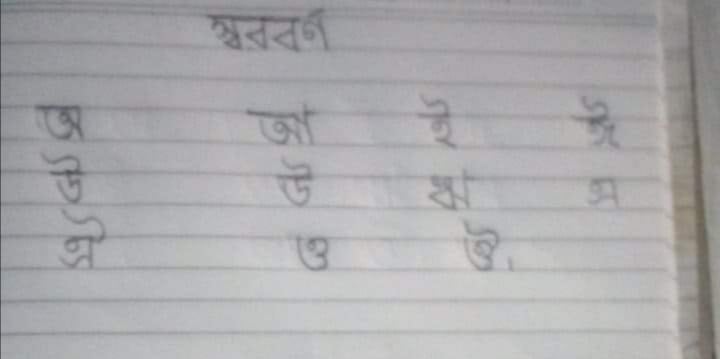 স্বরবর্ণ
অ আ ই ঈ
উ ঊ ঋ এ
ঐ ও ঔ